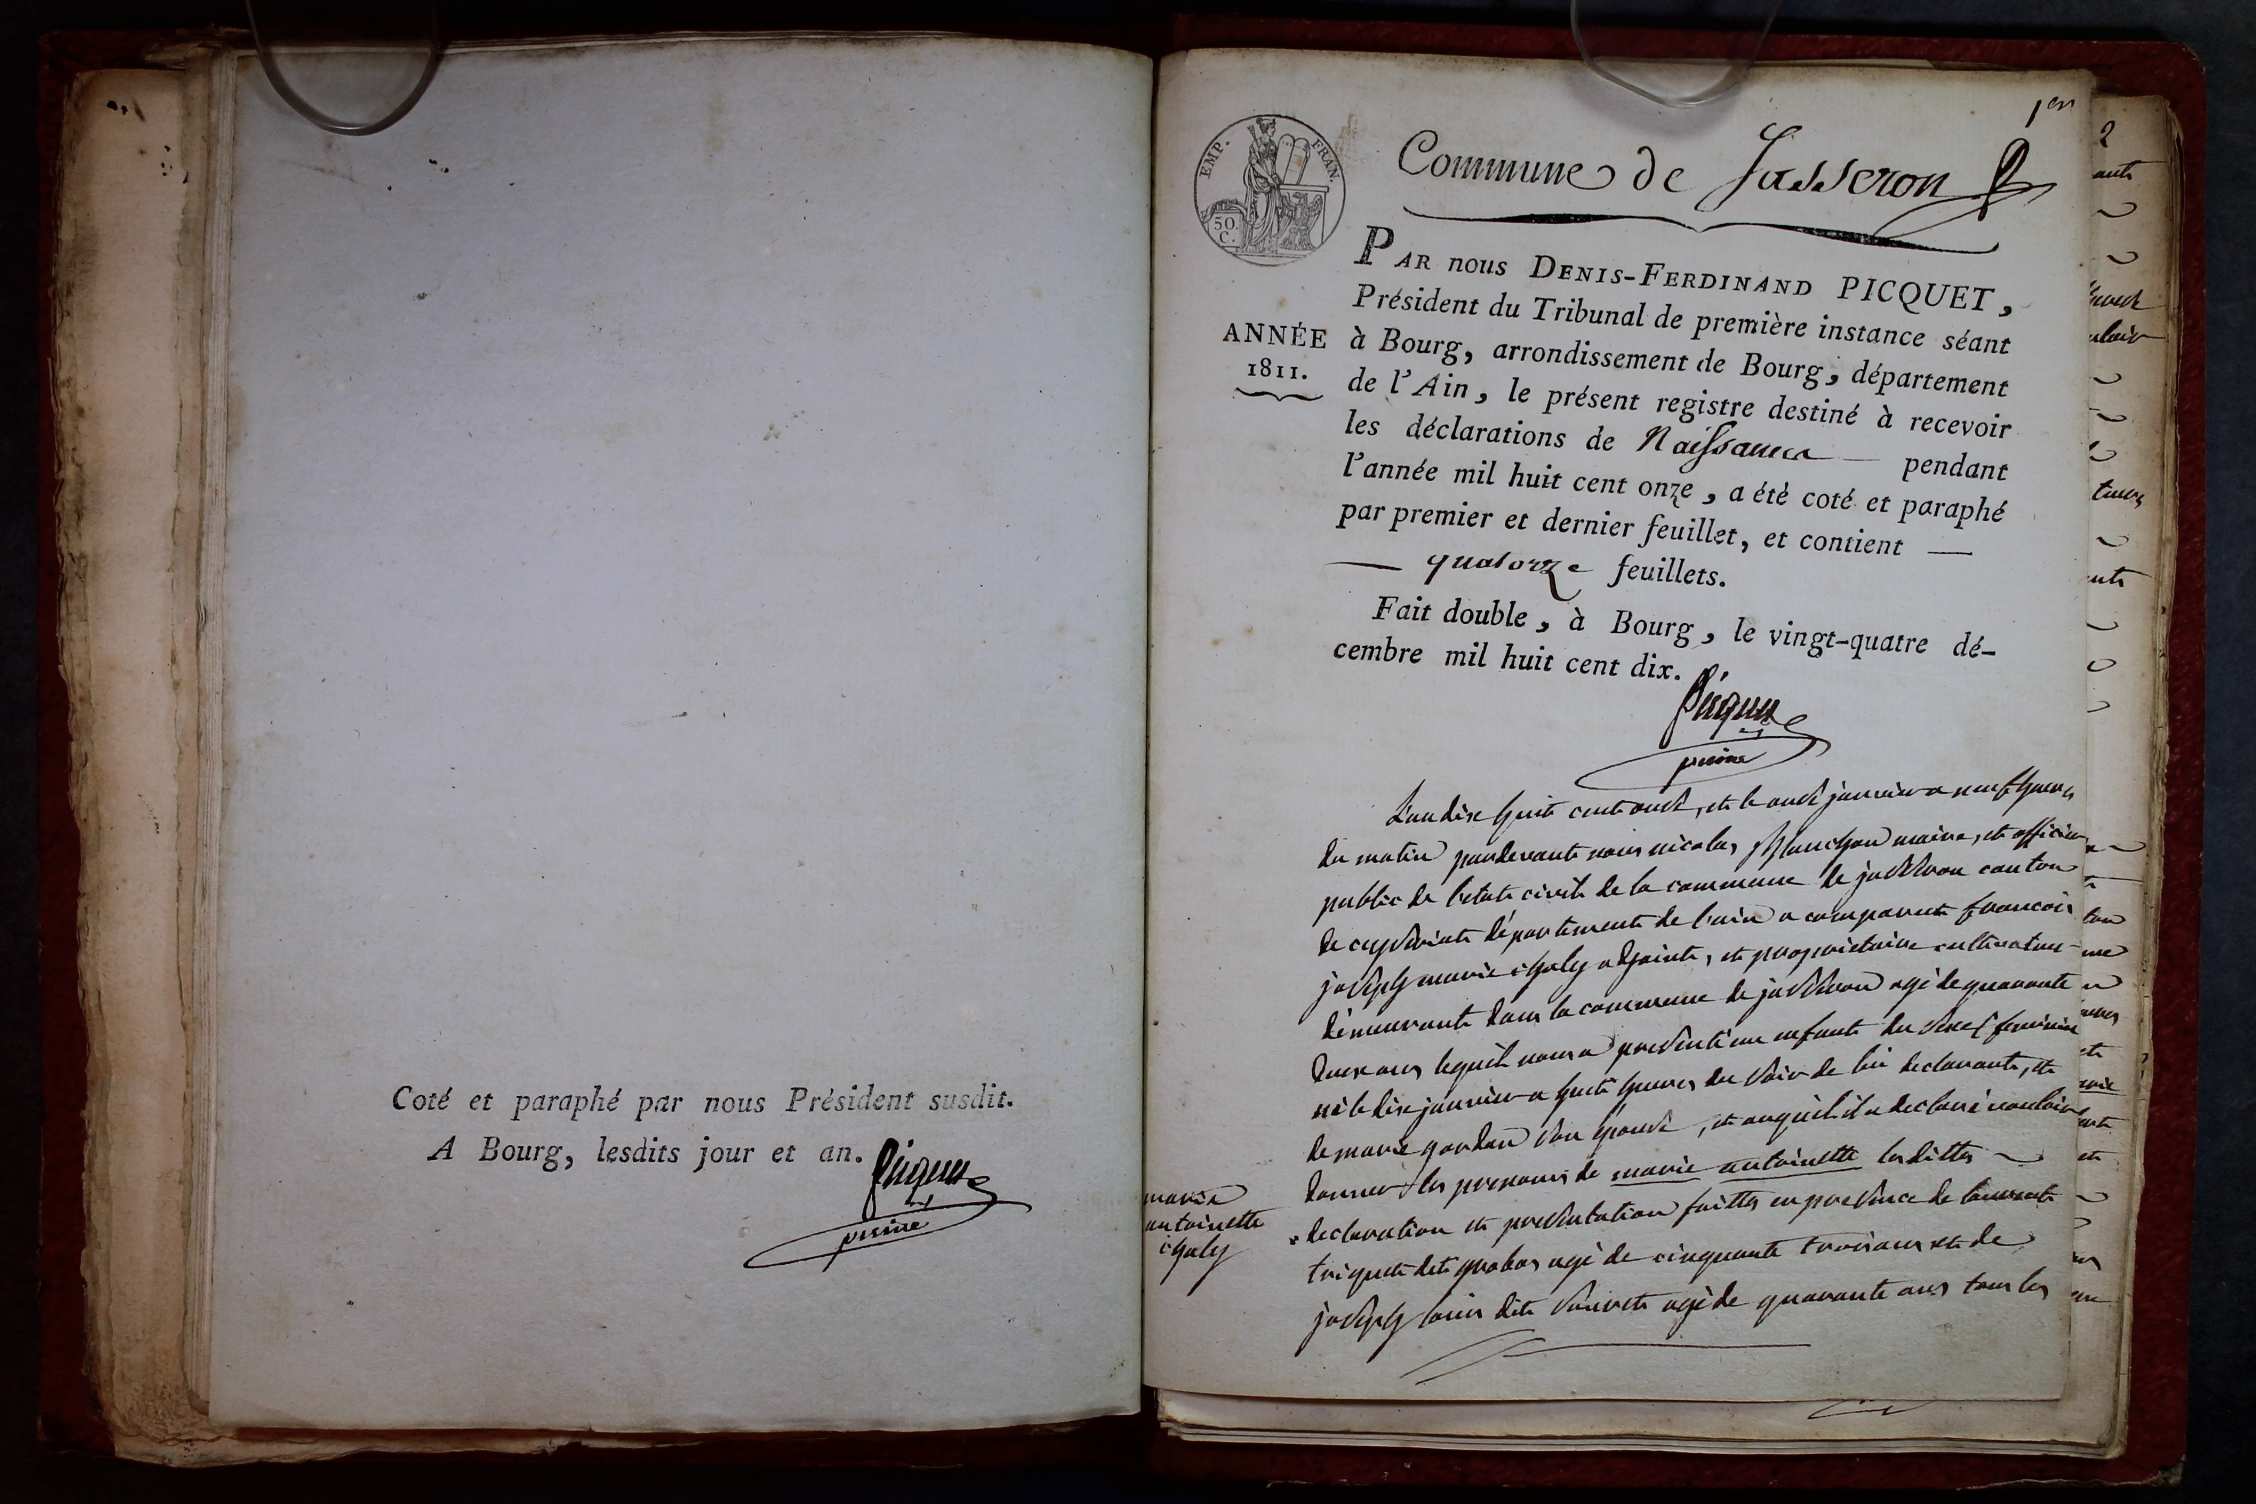 Coté et paraphé par nous Président susdit.
A Bourg, lesdits jour et an.
Picquet
1er
EMP. FRAN.
50 C.
Commune de Jasseron
PAR nous DENIS-FERDINAND PICQUET,
Président du Tribunal de première instance séant
ANNÉE
1811.
à Bourg, arrondissement de Bourg, département
de l'Ain, le présent registre destiné à recevoir
les déclarations de Naissances pendant
l'année mil huit cent onze, a été coté et paraphé
par premier et dernier feuillet, et contient —
— quatorze feuillets.
Fait double, à Bourg, le vingt-quatre dé-
cembre mil huit cent dix.
Picquet
L'an dixe huit cent onse, et le onse janvier a neuf heures
du matin pardevant nous nicolas maire, et officier
public de l'etat civil de la commune de jasseron canton
de ceyseriat département de l'ain a comparut francois
joseph marie chaly adjoint, et proprietaire cultivateur
démeurant dans la commune de jasseron agé de quarante
deux ans lequel nous a presenté un enfant du sexe feminin
né le dix janvier a huit heures du soir de lui declarant, et
de marie son épouse, et auquel il a declaré vouloir
donner les prenoms de marie antoinette lesdittes
declaration et presentation faittes en presence de laurent
triquet dit agé de cinquante trois ans et de
joseph dit agé de quarante ans tous les
marie
antoinette
chaly